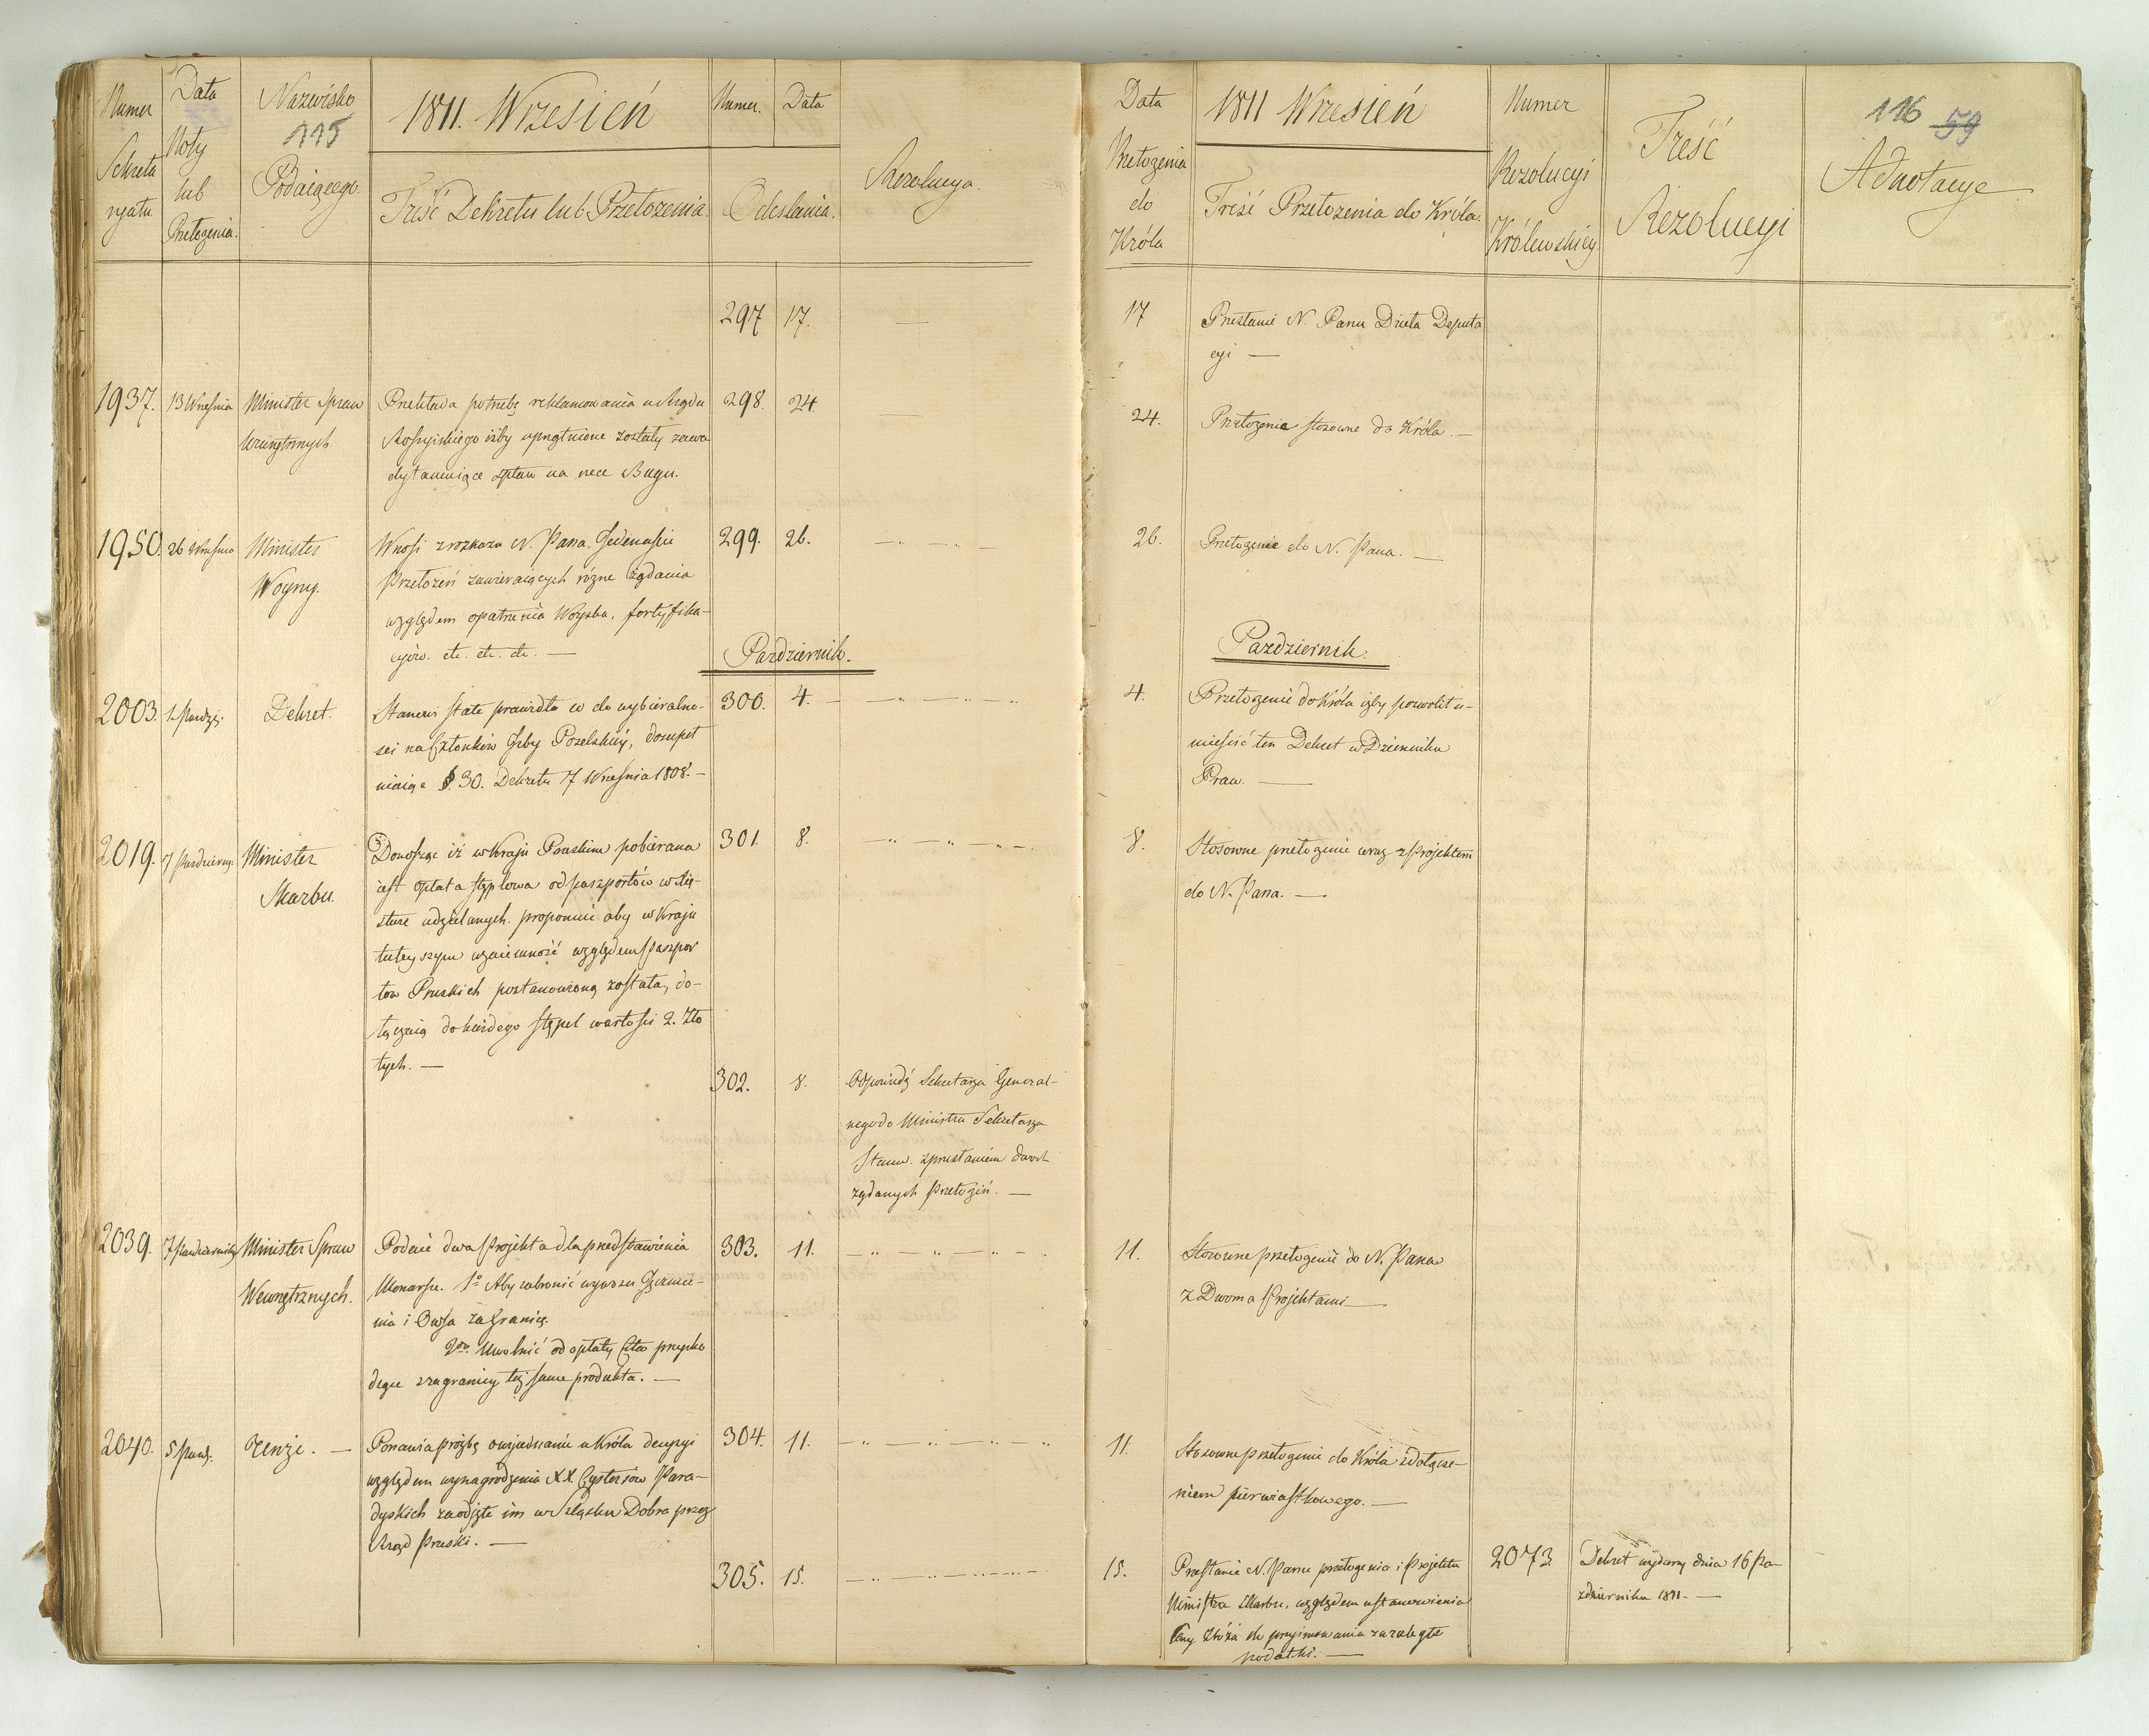 Numer
Sekreta
ryatu
Data
Noty
lub
Przełożenia.
Nazwisko
115
Podaiącego.
1811. Wrzesień
Treść Dekretu lub Przełożenia.
Numer.
Data
Odesłania.
Rezolucya.
297 17. —
1937. 13 Września Minister Spraw
Wewnętrznych
Przekłada potrzebę reklamowania u Rządu
Rossyiskiego iżby uprzątnione zostały zawa
dy tamuiące spław na rzece Bugu.
298. 24. —
1950. 26 Września Minister
Woyny.
Wnosi z rozkazu N. Pana Jedenaście
Przełożeń zawieraiących różne żądania
względem opatrzenia Woyska, fortyfika-
cyiów. etc. etc. etc. —
299. 26. — „ — „ —
Pazdziernik.
2003. 1. Pazdz. Dekret.
Stanowi stałe prawidła w do wybieralno-
ści na Członków Izby Poselskiéy, dozupeł
niaiąc §. 30. Dekretu 7 Września 1808. —
300. 4. — „ — „ — „
2019. 7 Pazdziern. Minister
Skarbu.
Donosząc iż w Kraju Pruskim pobierana
iest opłata stęplowa od paszportów w Xię-
stwie udzielanych. proponuie aby w Kraju
tuteyszym wzaiemność względem Paszpor
tow Pruskich postanowioną została, do-
łączaią do każdego stępel wartości 2. Zło
tych. —
301. 8. — „ — „ — „ —
302. 8. Odpowiedź Sekretarza General-
nego do Ministra Sekretarza
Stanu. z przesłaniem dwoch
żądanych Przełożeń. —
2039. 7 Pazdziernika Minister Spraw
Wewnętrznych.
Podaie dwa Projekta dla przedstawienia
Monarsze. 1º Aby zabronić wywozu Jęczmie-
nia i Owsa za Granicę.
2do Uwolnić od opłaty Cła przycho
dzące z zagranicy też same produkta. —
303. 11. — „ „ „ —
2040. 5 Pazdz. Tenże. —
Ponawia prozbę o wyjednanie u Króla decyzyi
względem wynagrodzenia XX. Cystersów Para-
dyskich za odjęte im w Szląsku Dobra przez
Rząd Pruski. —
304. 11. — „ — „ — „ — „
305. 15. — „ — „ — „ —
Data
Przełożenia
do
Króla
1811 Wrzesień
Treść Przełożenia do Króla.
Numer
Rezolucyi
Królewskiéy.
Treść
Rezolucyi
116 59
Adnotacye
17 Przesłanie N. Panu Dzieła Deputa
cyi —
24. Przełożenie stosowne do Króla. —
26. Przełożenie do N. Pana. —
Pazdziernik.
4. Przełożenie do Króla iżby pozwolił u-
mieścić ten Dekret w Dzienniku
Praw. —
8. Stosowne przełożenie wraz z Projektem
do N. Pana. —
11. Stosowne przełożenie do N. Pana
z Dwoma Projektami —
11. Stosowne przełożenie do Króla z dołącze-
niem pierwiastkowego. —
15. Przesłanie N. Panu przełożenia i Projektu
Ministra Skarbu, względem ustanowienia
Ceny Zboża do przyimowania za zaległe
podatki. —
2073 Dekret wydany dnia 16 Pa-
zdziernika 1811. —